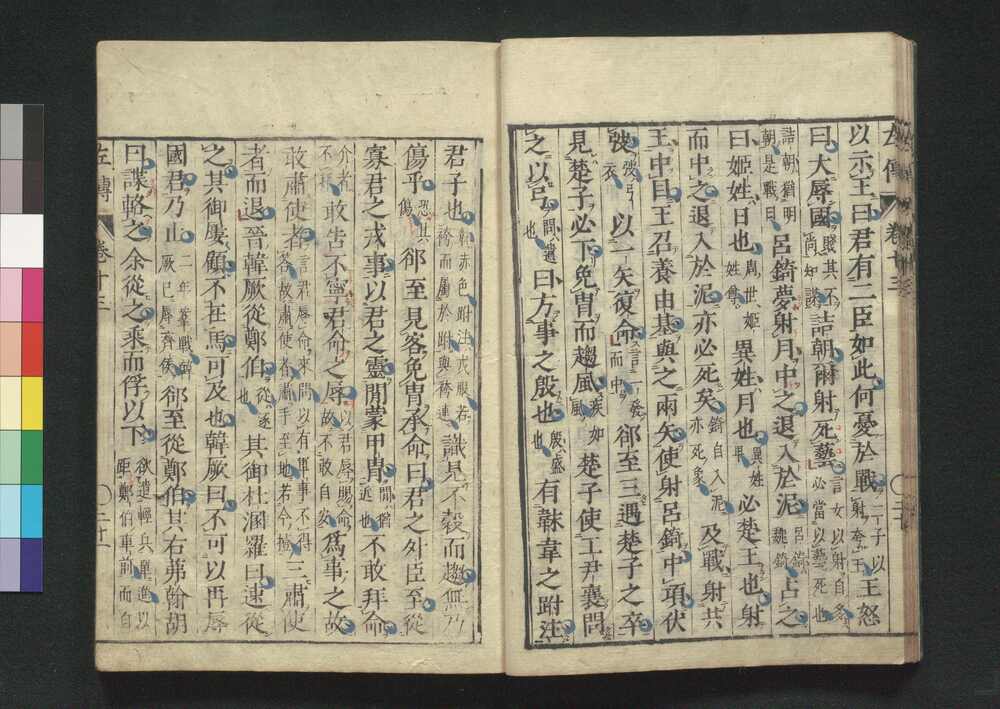 左傳
卷十三
以示王曰君有二臣如此何憂於戰二子以射夸王王怒
曰大辱國賤其不尚知謀詰朝爾射死藝言女以射自多必當以藝死也
詰朝猶明朝是戰日呂錡夢射月中之退入於泥呂錡魏錡占之
曰姬姓日也周世姬姓尊異姓月也異姓卑必楚王也射
而中之退入於泥亦必死矣錡自入泥亦死象及戰射共
王中目王召養由基與之兩矢使射呂錡中項伏
弢弢弓衣以一矢復命言一發而中郤至三遇楚子之卒
見楚子必下免胄而趨風疾如風楚子使工尹襄問
之以弓問遺也曰方事之殷也殷盛也有韎韋之跗注
君子也韎赤色跗注戎服若袴而屬於跗與袴連識見不穀而趨無乃
傷乎恐其傷郤至見客免胄承命曰君之外臣至從
寡君之戎事以君之靈閒蒙甲胄閒猶近也不敢拜命
介者不拜敢告不寧君命之辱以君辱賜命故不敢自安爲事之故
敢肅使者言君辱命來問以有軍事不得荅故肅使者肅手至地若今撎三肅使
者而退晉韓厥從鄭伯從逐也其御杜溷羅曰速從
之其御屢顧不在馬可及也韓厥曰不可以再辱
國君乃止二年鞌戰韓厥已辱齊侯郤至從鄭伯其右茀翰胡
曰諜輅之余從之乘而俘以下欲遣輕兵單進以距鄭伯車前而自
左傳
卷十三
二十一